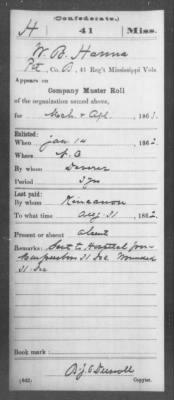 (Confederate.)
H 41 Miss.
W. B. Hanna
Pvt, Co. B, 41 Reg't Mississippi Vols
Appears on
Company Muster Roll
of the organization named above,
for Mch & Apl, 186
Enlisted:
When Jan 14, 1862.
Where
By whom
Period 3 yrs
Last paid:
By whom Kincannon
To what time Aug 31, 186
Present or absent Absent
Remarks: Sent to Hospital from
31 Dec Wounded
31 Dec
Book mark:
(642)
Copyist.